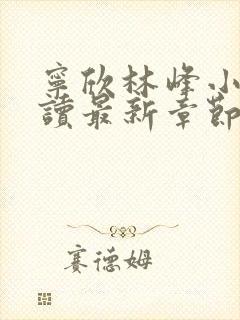 寧欣林峰小
讀最新章節
賽德姆